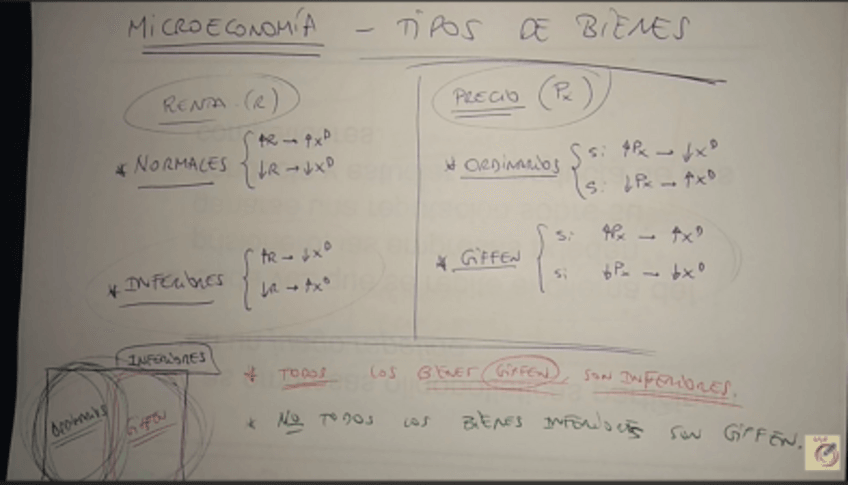 MICROECONOMÍA - TIPOS DE BIENES
RENTA (R)
* NORMALES { ↑R → ↑X^D
↓R → ↓X^D
* INFERIORES { ↑R → ↓X^D
↓R → ↑X^D
PRECIO (Px)
* ORDINARIOS { Si ↑Px → ↓X^D
Si ↓Px → ↑X^D
* GIFFEN { Si ↑Px → ↑X^D
Si ↓Px → ↓X^D
INFERIORES
ORDINARIOS GIFFEN
* TODOS LOS BIENES GIFFEN SON INFERIORES.
* NO TODOS LOS BIENES INFERIORES SON GIFFEN.